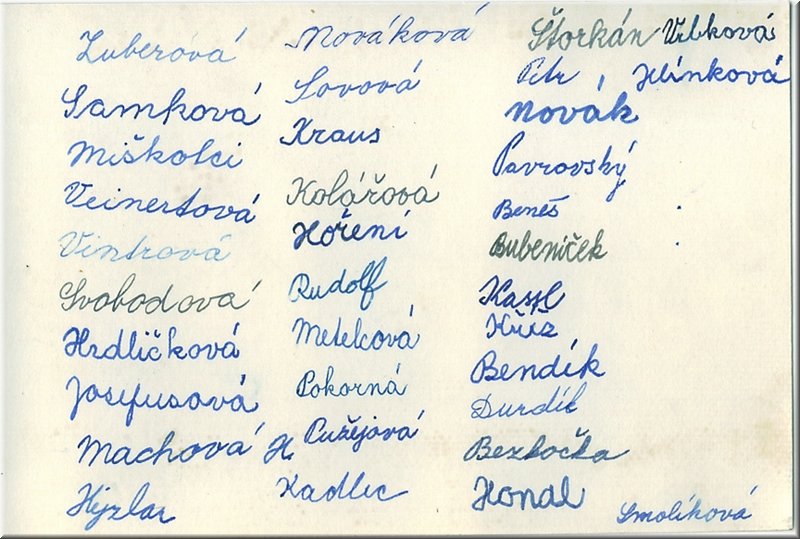 Zuberová
Samková
Miškolci
Veinertová
Vintrová
Svobodová
Hrdličková
Josefusová
Machová
Hyzlar
Nováková
Lovová
Kraus
Kolářová
Hoření
Rudolf
Metelcová
Pokorná
H. Pužejová
Kadlec
Štorkán Vrbková
Petr, Hlinková
Novák
Pavrovský
Beneš
Bubeníček
Kassl
Kříž
Bendík
Durdil
Bezbočka
Hondl
Smolíková